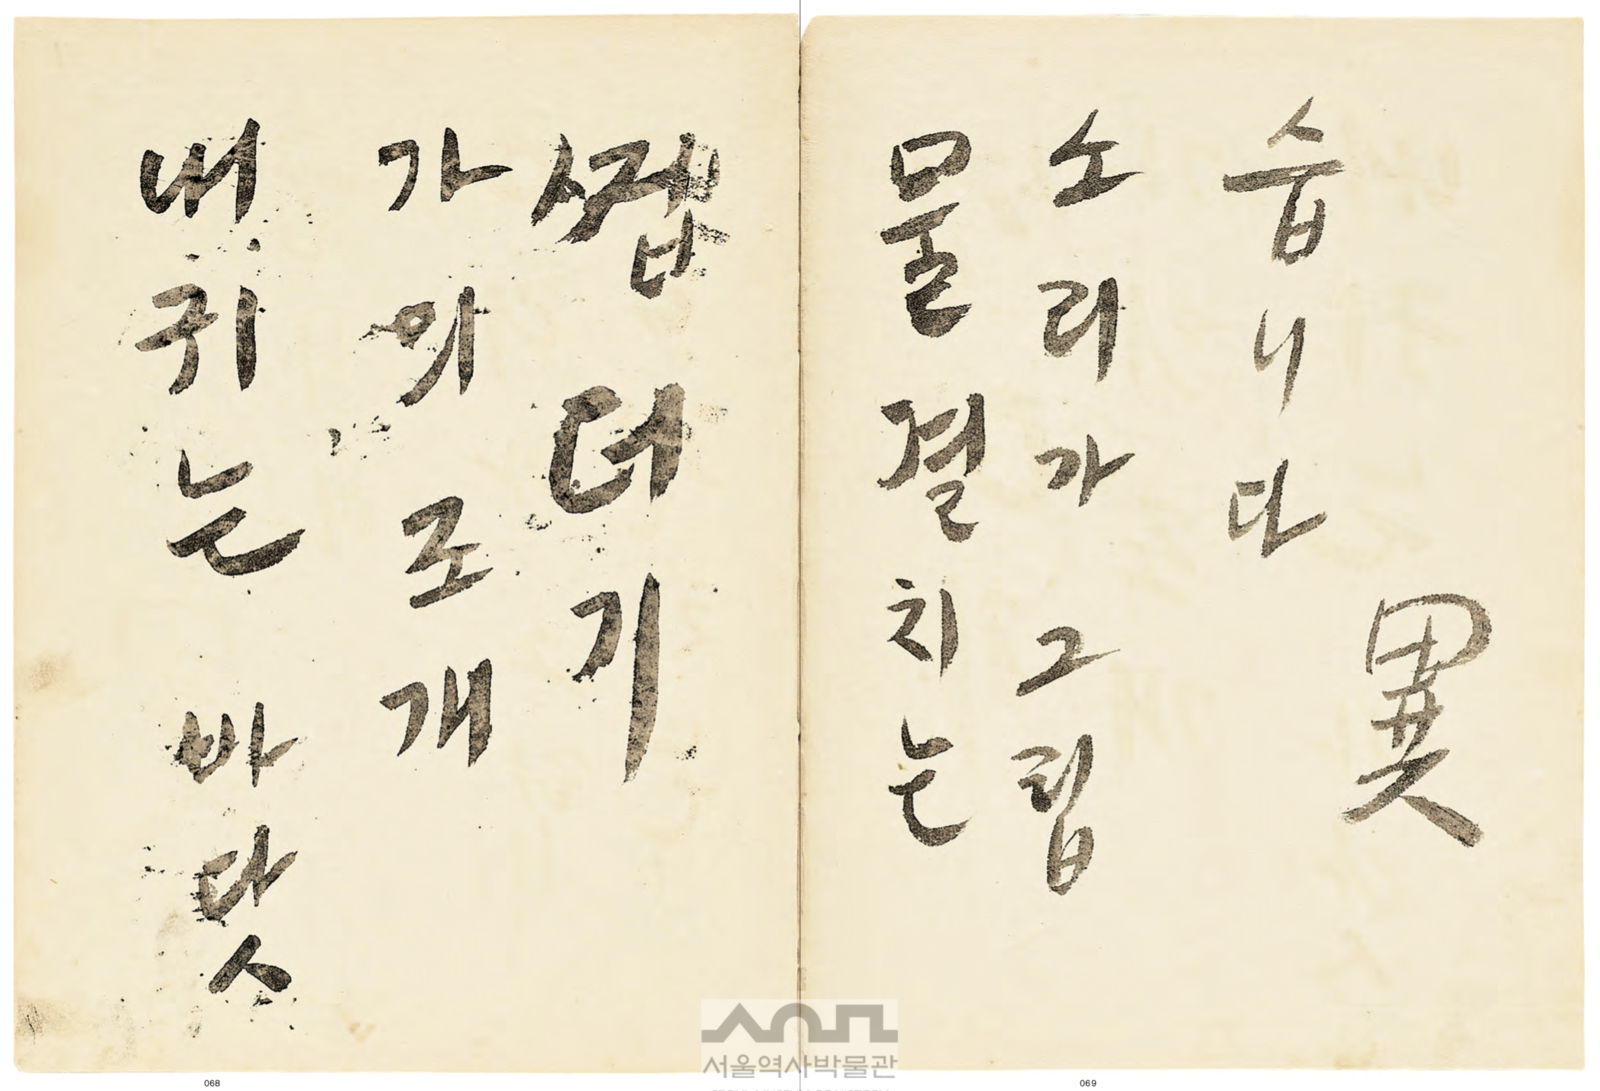 내귀는 바닷
가의조개
ᄭᅥᆸ더기
물결치는
소리가그립
습니다
異
서울역사박물관
068
069